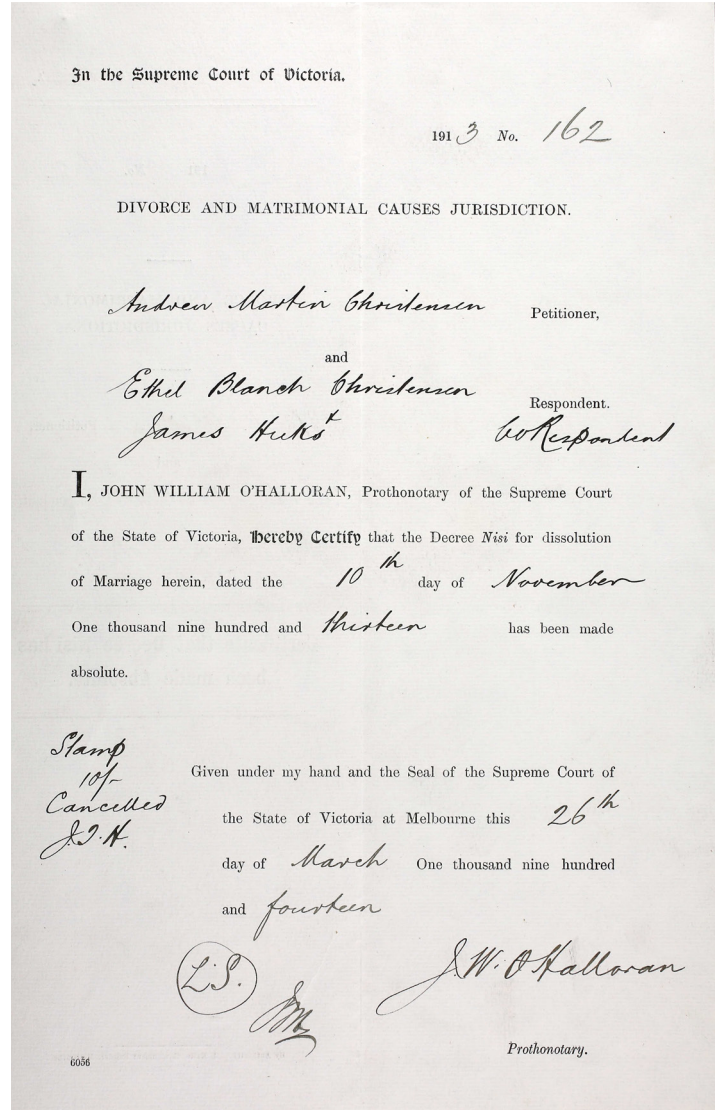 In the Supreme Court of Victoria.
1913 No. 162
DIVORCE AND MATRIMONIAL CAUSES JURISDICTION.
Andrew Martin Christensen Petitioner,
and
Ethel Blanch Christensen Respondent.
James Hicks Co Respondent
I, JOHN WILLIAM O'HALLORAN, Prothonotary of the Supreme Court
of the State of Victoria, hereby Certify that the Decree Nisi for dissolution
of Marriage herein, dated the 10th day of November
One thousand nine hundred and thirteen has been made
absolute.
Stamp
10/-
Cancelled
J.I.H.
Given under my hand and the Seal of the Supreme Court of
the State of Victoria at Melbourne this 26th
day of March One thousand nine hundred
and fourteen
L.S.
J. W. O'Halloran
Prothonotary.
6056